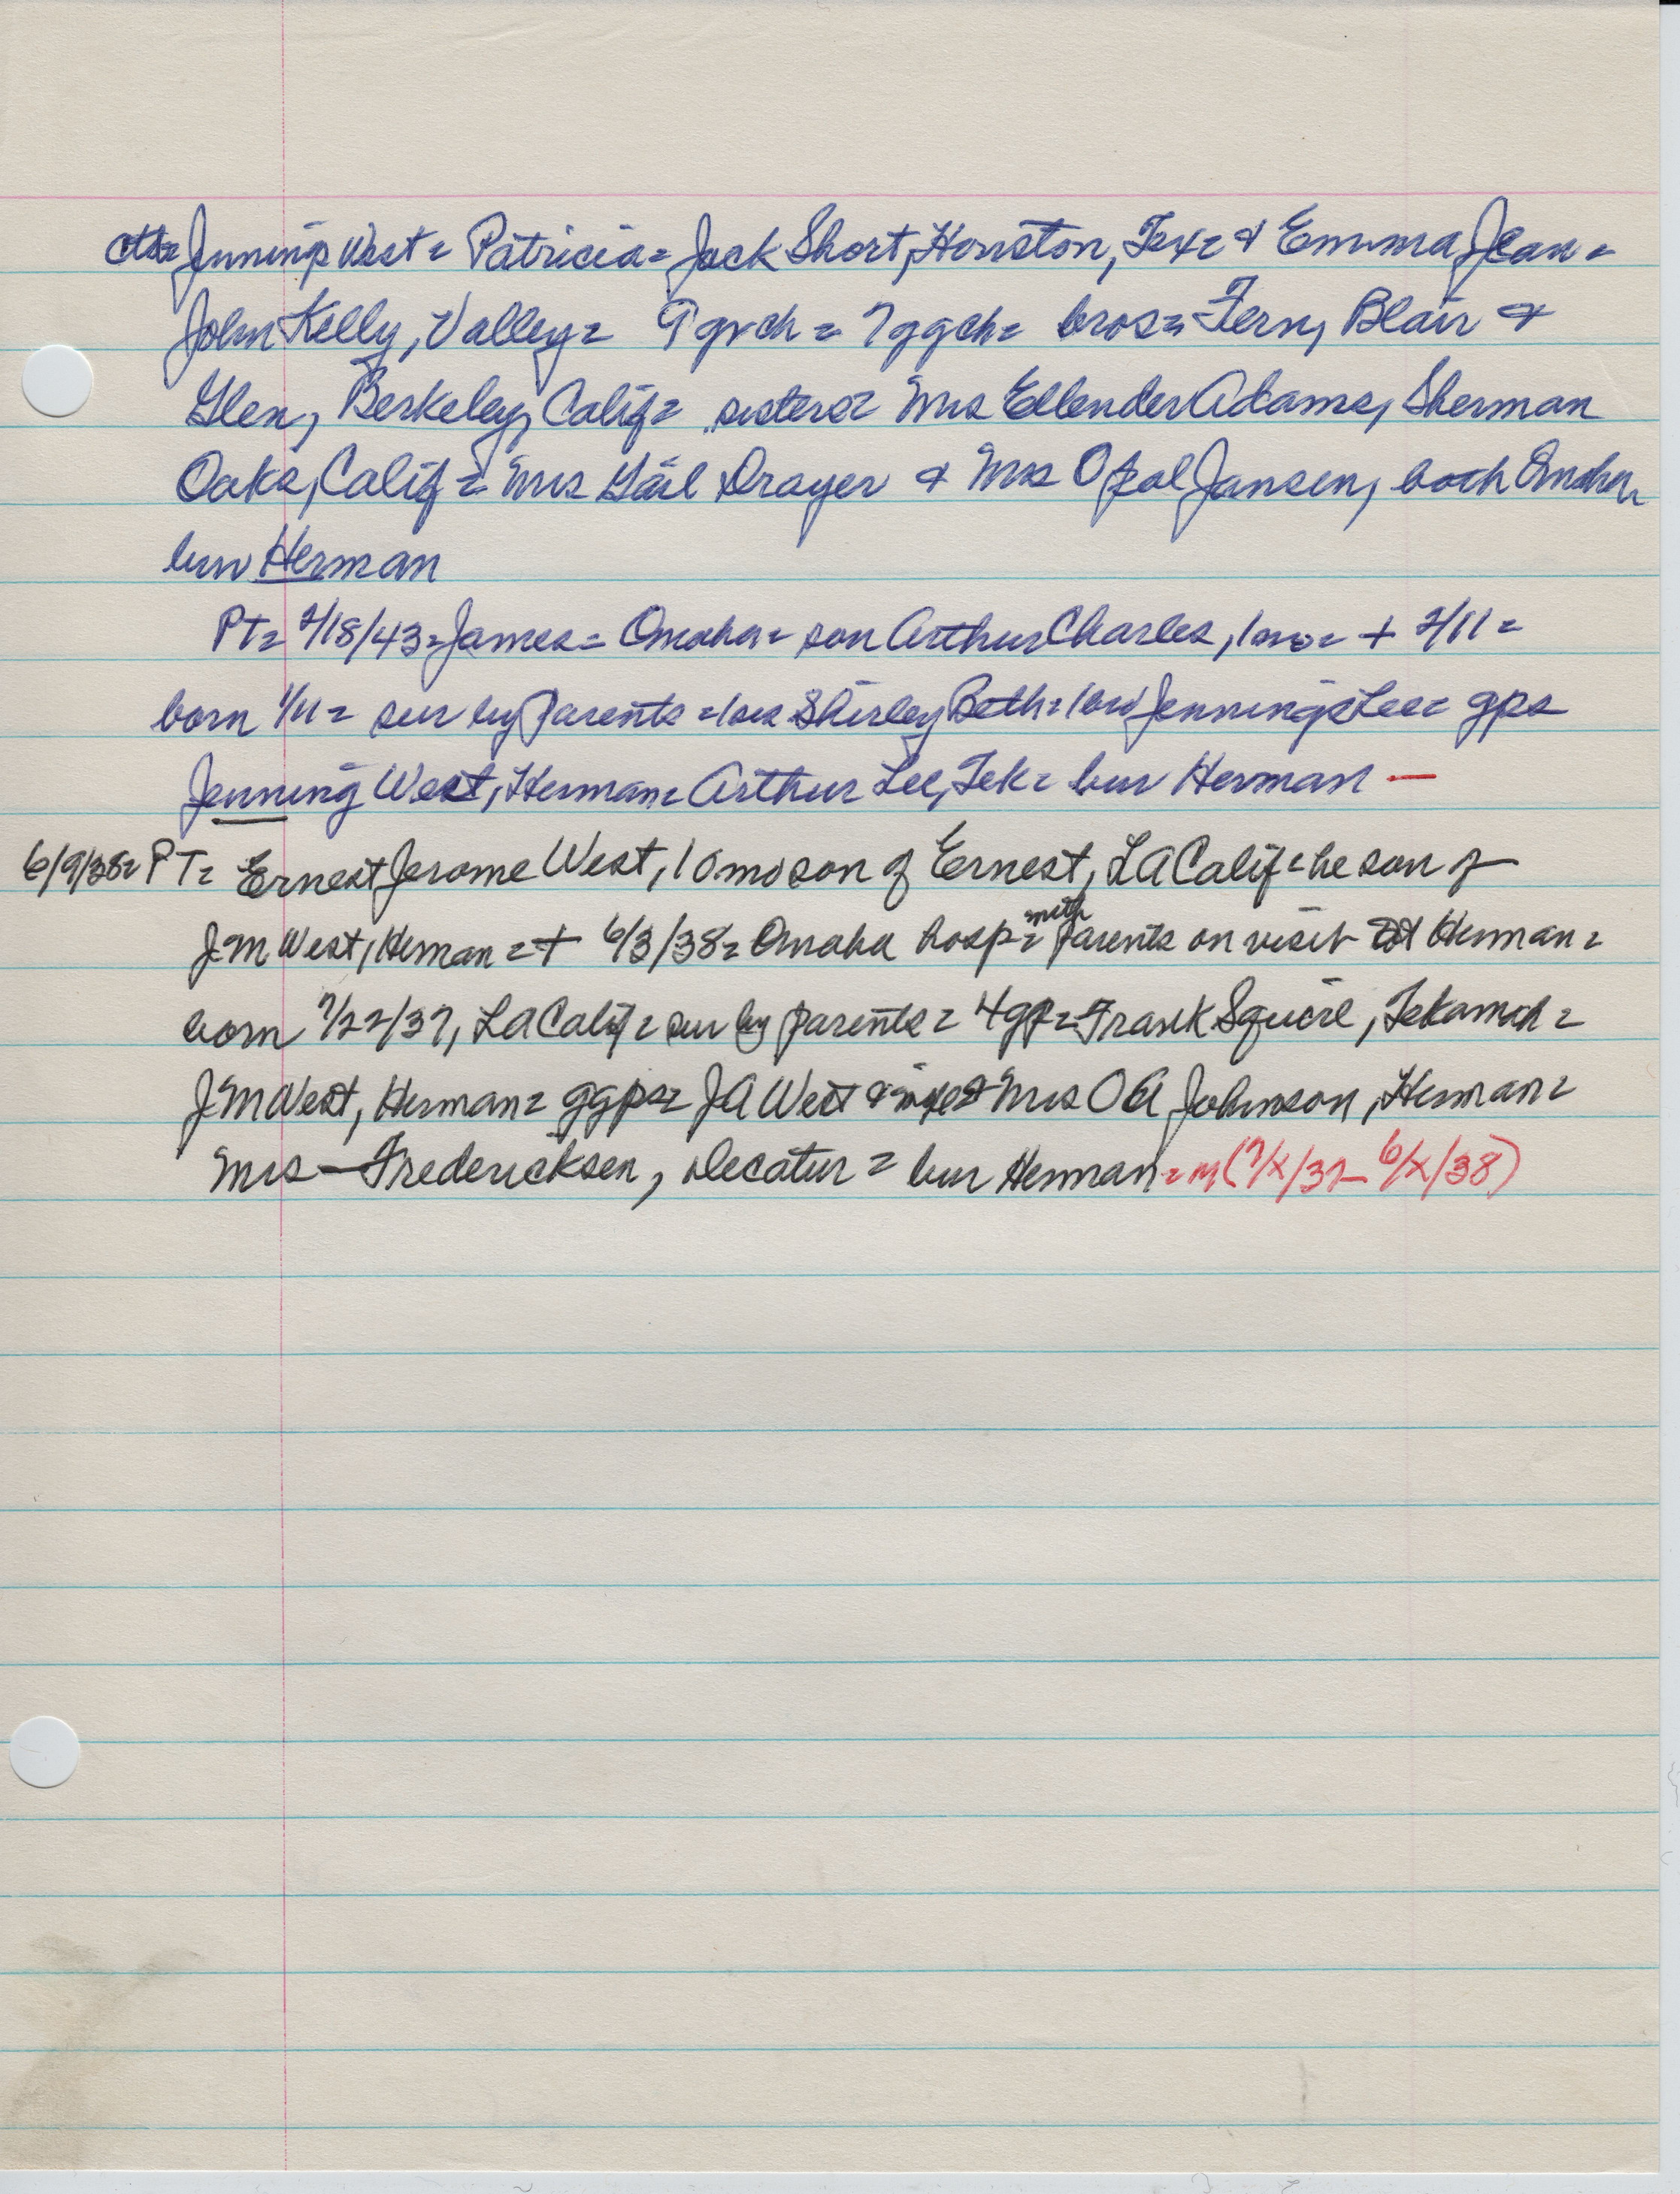 ctd= Jennings West = Patricia = Jack Short, Houston, Tex = & Emma Jean =
John Kelly, Valley = 9 grch = 7 ggch = bros = Fern, Blair &
Glen, Berkeley, Calif = sisters = Mrs Ellender Adams, Sherman
Oaks, Calif = Mrs Gail Drayer & Mrs Opal Jansen, both Omaha
bur Herman
PT = 2/18/43 = James = Omaha = son Arthur Charles, 1 mo = + 2/11 =
born 1/11 = sur by parents = 1 sis Shirley Beth = 1 bro Jennings Lee = gps
Jenning West, Herman = Arthur Lee, Tek = bur Herman —
6/9/38 = PT = Ernest Jerome West, 10 mo son of Ernest, LA Calif = he son of
J M West, Herman = + 6/3/38 = Omaha hosp = with parents on visit Herman =
born 7/22/37, LA Calif = sur by parents = 4 gp = Frank Squire, Tekamah =
J M West, Herman = ggps = J A West & Mrs O A Johnson, Herman =
Mrs — Fredericksen, Decatur = bur Herman = m (7/X/37 – 6/X/38)